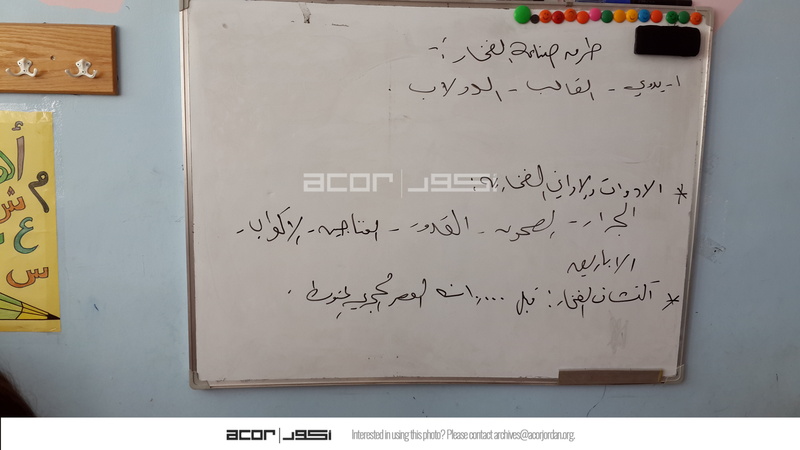 طرق صناعة الفخار :-
١- يدوي - القالب - الدولاب .
* الادوات والاواني الفخارية :
الجرار - الصحون - القدور - الفناجين - الاكواب -
الاباريق
* اكتشاف الفخار : قبل ١٠٠٠٠ سنة العصر الحجري
acor أكور
أ
م
ش
ع
س
acor أكور Interested in using this photo? Please contact archives@acorjordan.org.